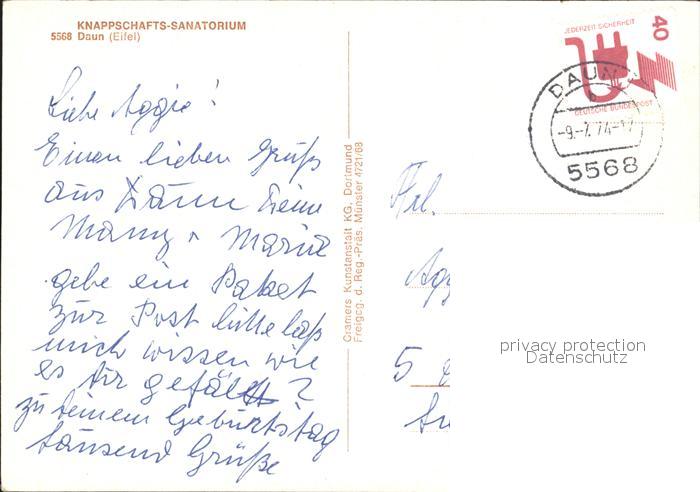 KNAPPSCHAFTS-SANATORIUM
5568 Daun (Eifel)
Liebe Aggie!
Einen lieben Gruß
aus Daun Deine
Mamy u Maria
gebe ein Paket
zur Post bitte laß
mich wissen wie
es dir gefällt?
zu deinem Geburtstag
tausend Grüße
Cramers Kunstanstalt KG, Dortmund
Freigeg. d. Reg.-Präs. Münster 4721/68
JEDERZEIT SICHERHEIT
40
DEUTSCHE BUNDESPOST
DAUN
b
-9.-7.74-17
5568
Frl.
Agg
5
privacy protection
Datenschutz